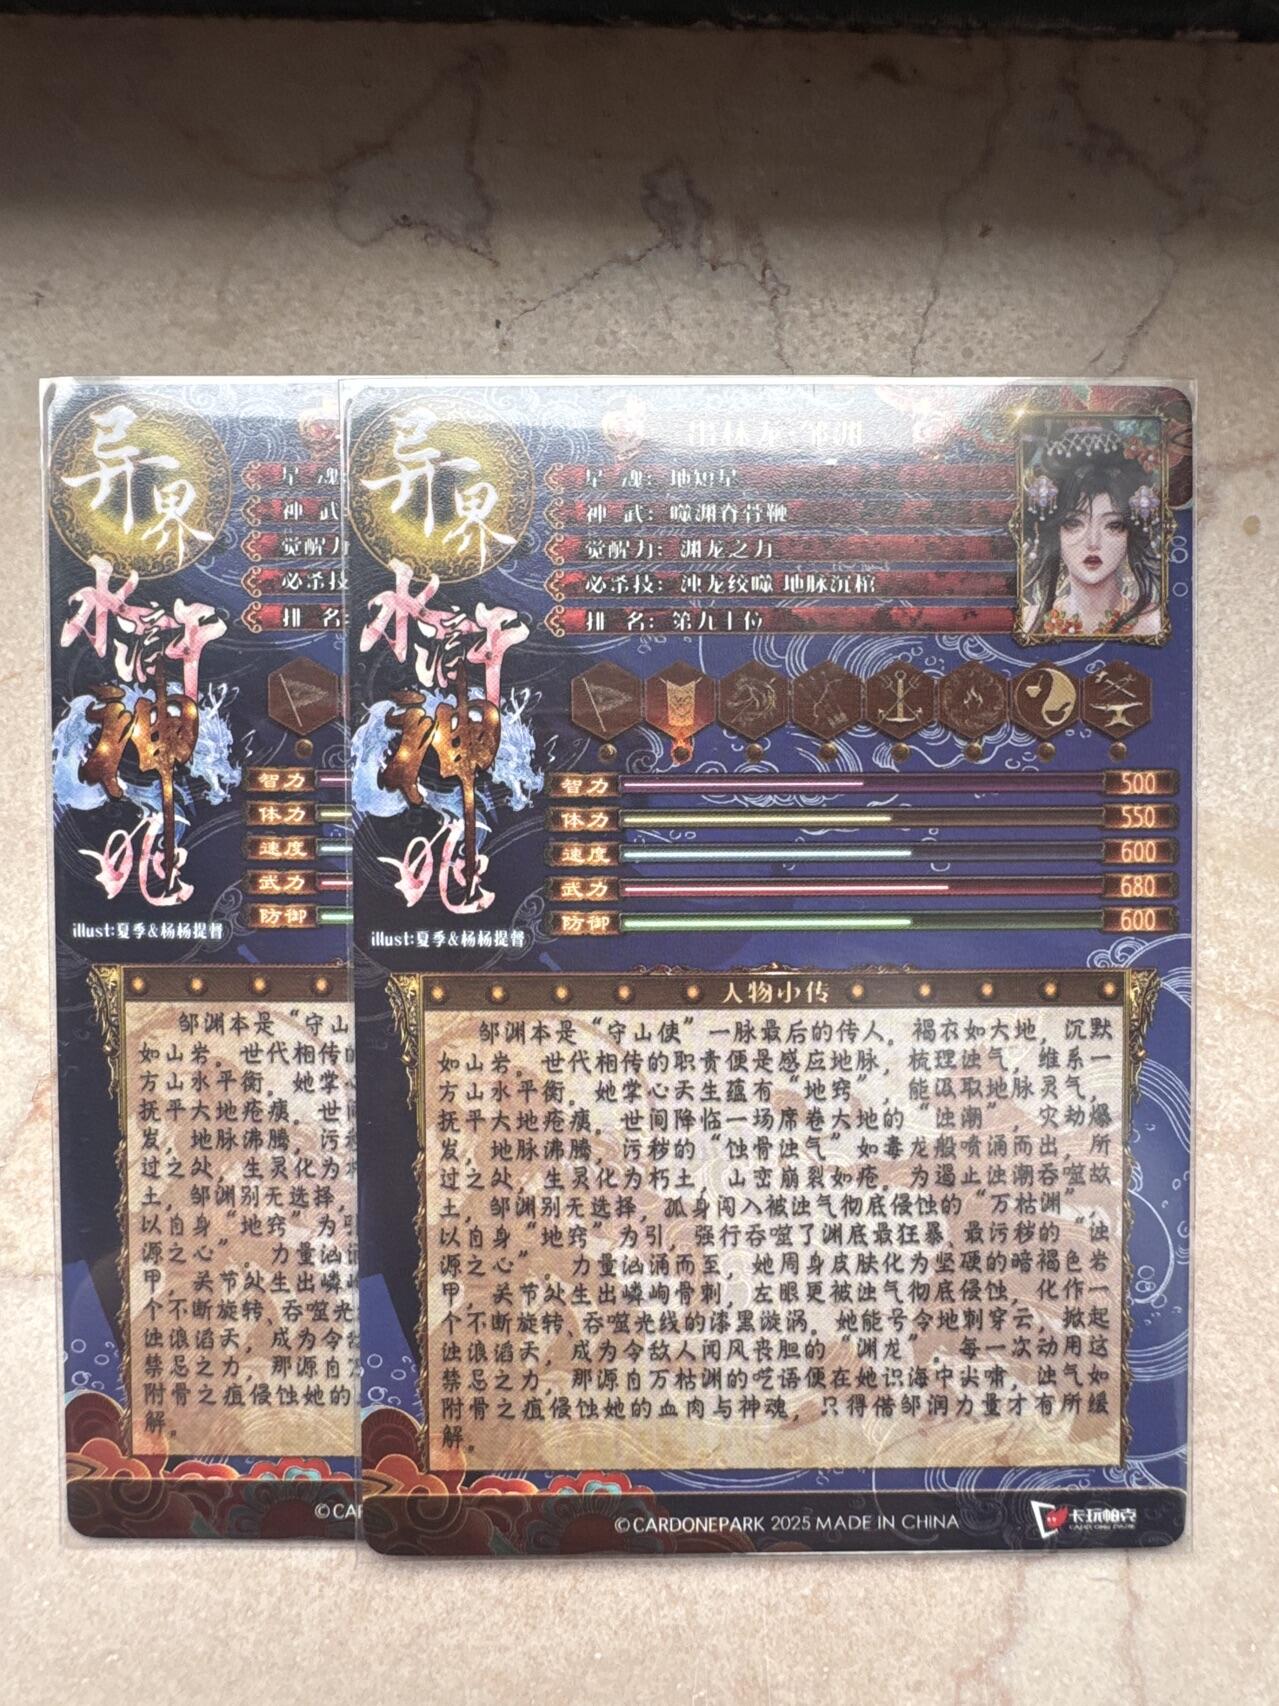 异界
水浒
神
兆
illust:夏季&杨杨提督
星 魂
神 武
觉醒力
必杀技
排 名:
智力
体力
速度
武力
防御
邹渊本是“守山
如山岩。世代相传的
方山水平衡。她掌心
抚平大地疮痍。世间
发,地脉沸腾,污秽
过之处,生灵化为
土,邹渊别无选择,
以自身“地窍”为引
源之心”。力量汹涌
甲,关节处生出嶙峋
个不断旋转、吞噬光
浊浪滔天,成为令敌
禁忌之力,那源自万
附骨之疽侵蚀她的
解。
©CAR
异界
水浒
神
兆
illust:夏季&杨杨提督
出林龙·邹渊
星 魂: 地短星
神 武: 噬渊脊骨鞭
觉醒力: 渊龙之力
必杀技: 冲龙绞噬 地脉沉棺
排 名: 第九十位
智力 500
体力 550
速度 600
武力 680
防御 600
人物小传
邹渊本是“守山使”一脉最后的传人。褐衣如大地,沉默
如山岩。世代相传的职责便是感应地脉,梳理浊气,维系一
方山水平衡。她掌心天生蕴有“地窍”,能汲取地脉灵气,
抚平大地疮痍。世间降临一场席卷大地的“浊潮”,灾劫爆
发,地脉沸腾,污秽的“蚀骨浊气”如毒龙般喷涌而出,所
过之处,生灵化为朽土,山峦崩裂如疮。为遏止浊潮吞噬故
土,邹渊别无选择,孤身闯入被浊气彻底侵蚀的“万枯渊”,
以自身“地窍”为引,强行吞噬了渊底最狂暴、最污秽的“浊
源之心”。力量汹涌而至,她周身皮肤化为坚硬的暗褐色岩
甲,关节处生出嶙峋骨刺,左眼更被浊气彻底侵蚀,化作一
个不断旋转、吞噬光线的漆黑漩涡。她能号令地刺穿云,掀起
浊浪滔天,成为令敌人闻风丧胆的“渊龙”。每一次动用这
禁忌之力,那源自万枯渊的呓语便在她识海中尖啸,浊气如
附骨之疽侵蚀她的血肉与神魂,只得借邹润力量才有所缓
解。
©CARDONEPARK 2025 MADE IN CHINA
卡玩帕克